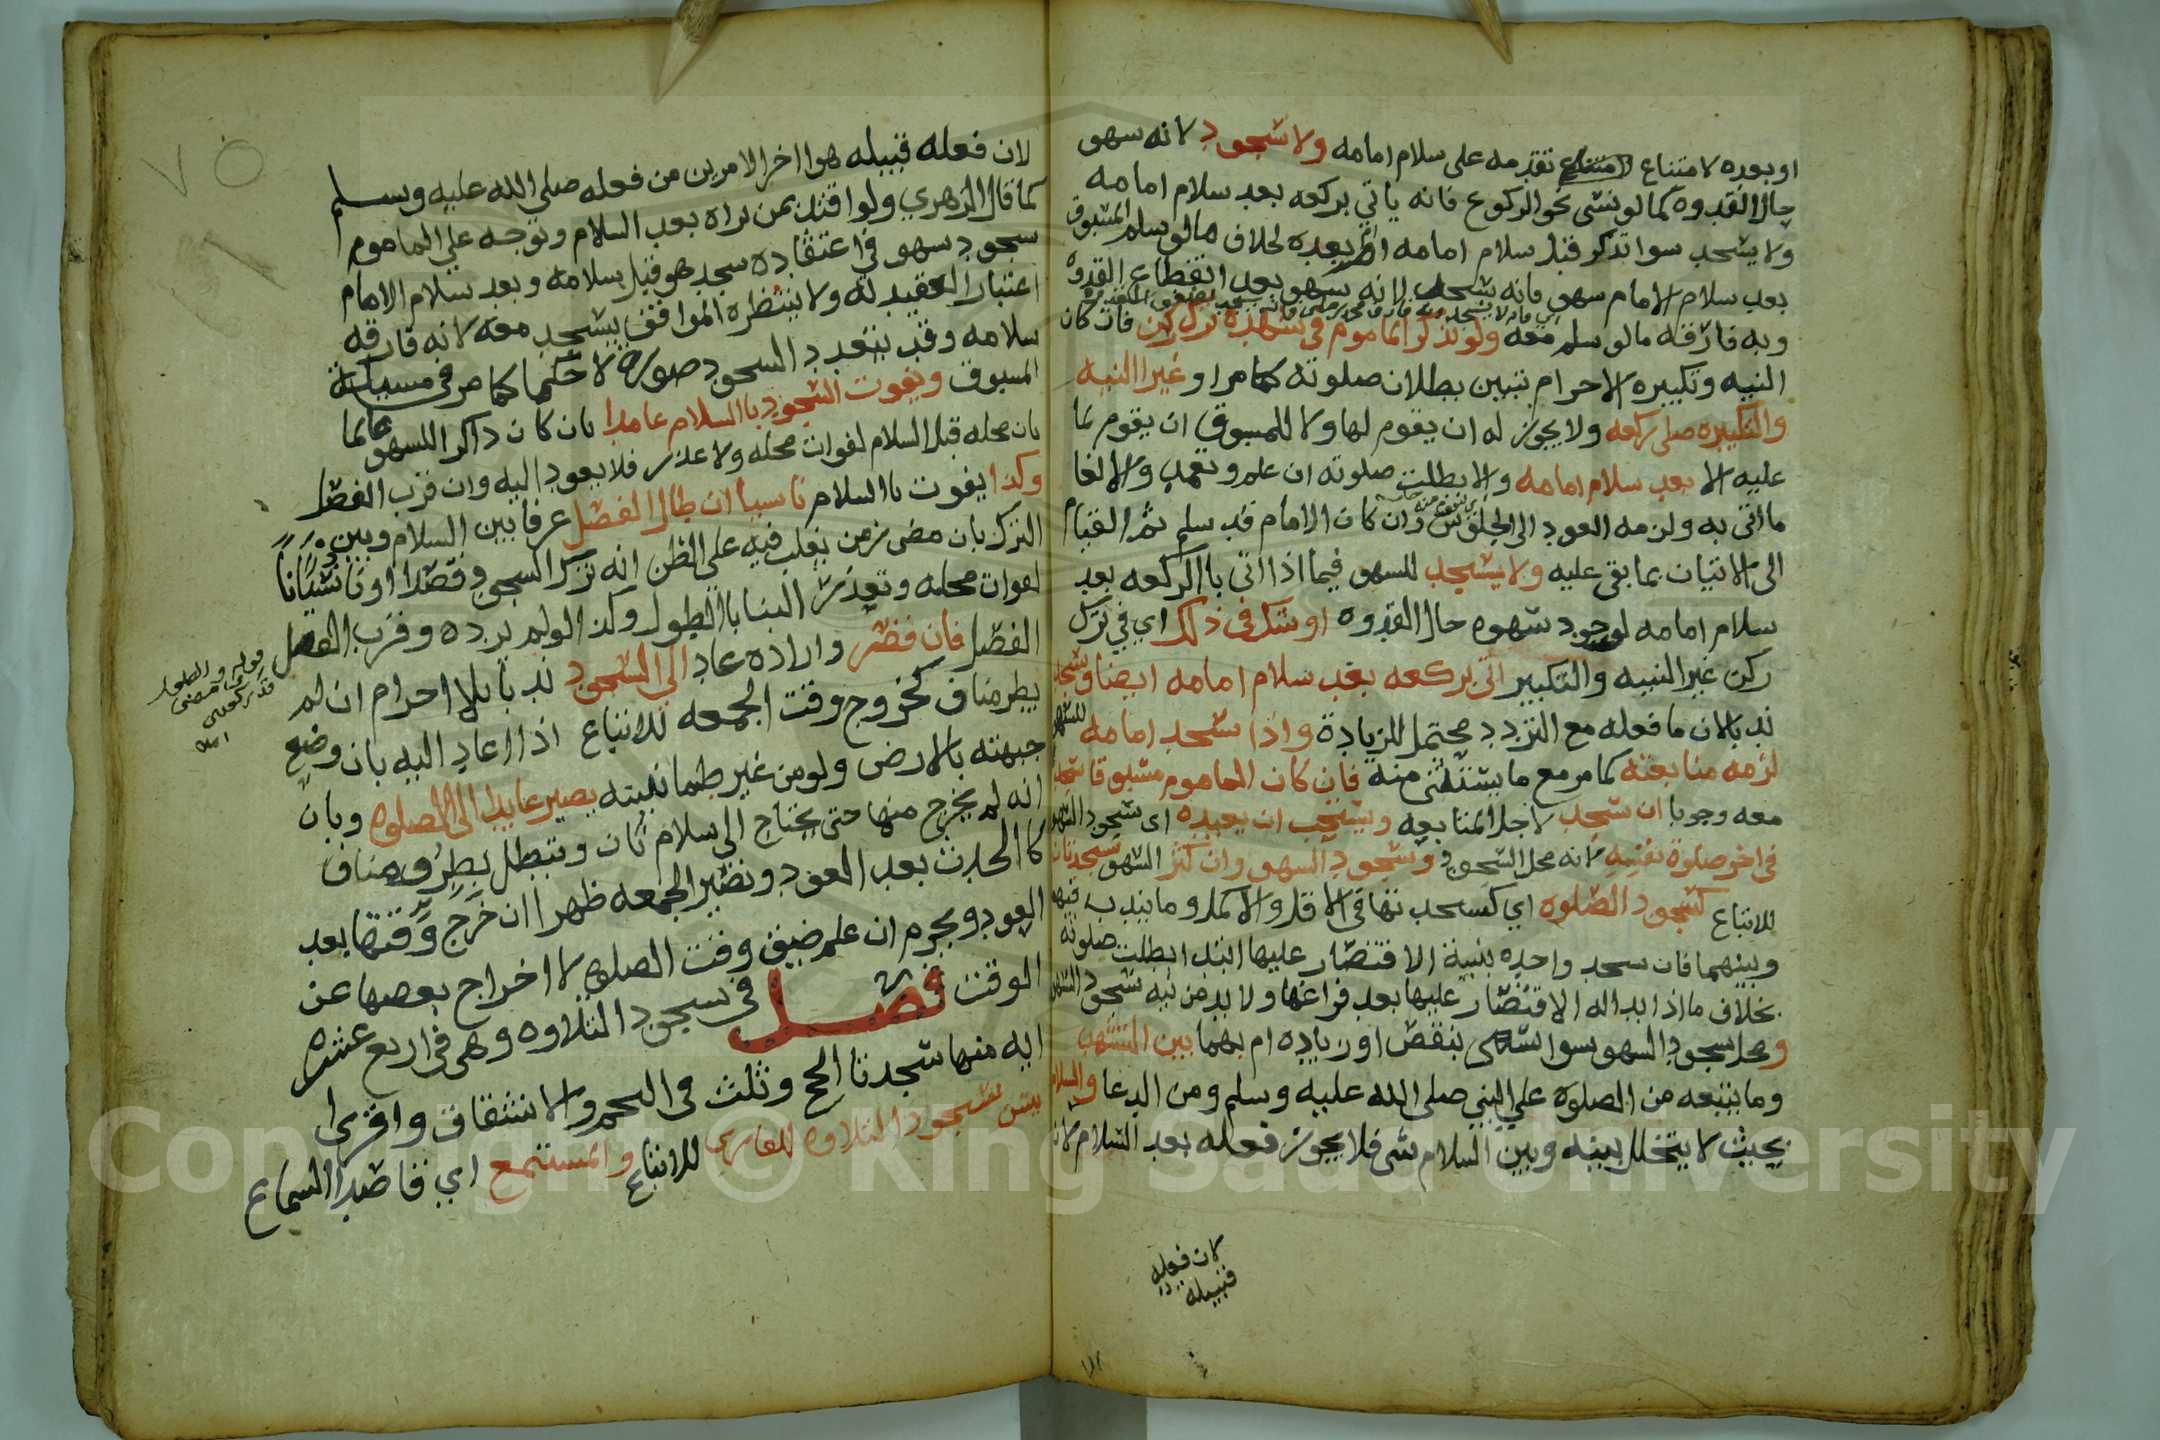 او بعده لامتناع تقدمه على سلام امامه ولا سجود لانه سهو
حال القدوه كما لو نسي نحو الركوع فانه ياتي بركعه بعد سلام امامه
ولا يسجد سوا تذكر قبل سلام امامه ام بعده بخلاف مالو سلم المسبوق
بعد سلام الامام سهو فانه يسجد لانه سهو بعد انقطاع القدوه
وبه فارقه مالو سلم معه ولو تذكر الماموم في تشهده ترك ركن فان كان
النيه وتكبيره الاحرام تبين بطلان صلوته كما مر او غير النيه
والتكبيره صلى ركعه ولا يجوز له ان يقوم لها ولا للمسبوق ان يقوم لما
عليه الا بعد سلام امامه والا بطلت صلوته ان علم وتعمد والا لغا
ما اتى به ولزمه العود الى الجلوس وان كان الامام قد سلم ثم القيام
الى الاتيان بما بقي عليه ولا يسجد للسهو فيما اذا اتى بالركعه بعد
سلام امامه لوجود سهوه حال القدوه او شك في ذلك اي في ترك
ركن غير النيه والتكبير اتى بركعه بعد سلام امامه ايضا وسجد
ندبا لان ما فعله مع التردد محتمل للزيادة واذا سجد امامه للسهو
لزمه متابعته كما مر مع ما يستثنى منه فان كان الماموم مسبوقا سجد
معه وجوبا ان سجد لاجل المتابعه ويستحب ان يعيده اى سجود السهو
في اخر صلوة نفسه لانه محل السجود وسجود السهو وان كثر السهو سجدتان
للاتباع كسجود الصلوه اي كسجدتها في الاقل والاكمل وما يندب فيهما
وبينهما فان سجد واحده بنية الاقتصار عليها ابتدا بطلت صلوته
بخلاف ما اذا بدا له الاقتصار عليها بعد فراغها ولا بد من نيه سجود السهو
ومحل سجود السهو سوا سهى بنقص او زياده ام بهما بين التشهد
وما يتبعه من الصلوة علي النبي صلى الله عليه وسلم ومن الدعا والسلام
بحيث لا يتخلل بينه وبين السلام شي فلا يجوز فعله بعد السلام
لان فعله
قبيله
٧٥
لان فعله قبيله هو اخر الامرين من فعله صلى الله عليه وسلم
كما قال الزهري ولو اقتدى بمن يراه بعد السلام وتوجه علي الماموم
سجود سهو في اعتقاده سجد هو قبل سلامه وبعد سلام الامام
اعتبارا لعقيدته ولا ينتظره الموافق ليسجد معه لانه فارقه
سلامه وقد يتعدد السجود صورة لا حكما كما مر في مسالة
المسبوق ويفوت السجود بالسلام عامدا بان كان ذاكرا للسهو عالما
بان محله قبل السلام لفوات محله ولا عذر فلا يعود اليه وان قرب الفصل
وكذا يفوت بالسلام ناسيا ان طال الفصل عرفا بين السلام وبين
الترك بان مضى زمن يغلب فيه علي الظن انه ترك السجود قصدا او نسيانا
لفوات محله وتعذر البنا بالطول وكذا لو لم يرده وقرب الفصل
الفصل فان قصر واراده عاد الي السجود ندبا بلا احرام ان لم
يطر مناف كخروج وقت الجمعه للاتباع اذا اعاد اليه بان وضع
جبهته بالارض ولو من غير طمانينته يصير عايدا الى الصلوه وبان
انه لم يخرج منها حتى يحتاج الى سلام ثان وتبطل بطرو مناف
كالحدث بعد العود وتصير الجمعه ظهرا ان خرج وقتها بعد
العود ويحرم ان علم ضيق وقت الصلوه لاخراج بعضها عن
الوقت فصل في سجود التلاوه وهى في اربع عشره
ايه منها سجدتا الحج وثلث في النجم والانشقاق واقرى
يسن سجود التلاوه للقارى للاتباع والمستمع اي قاصد السماع
Copyright © King Saud University